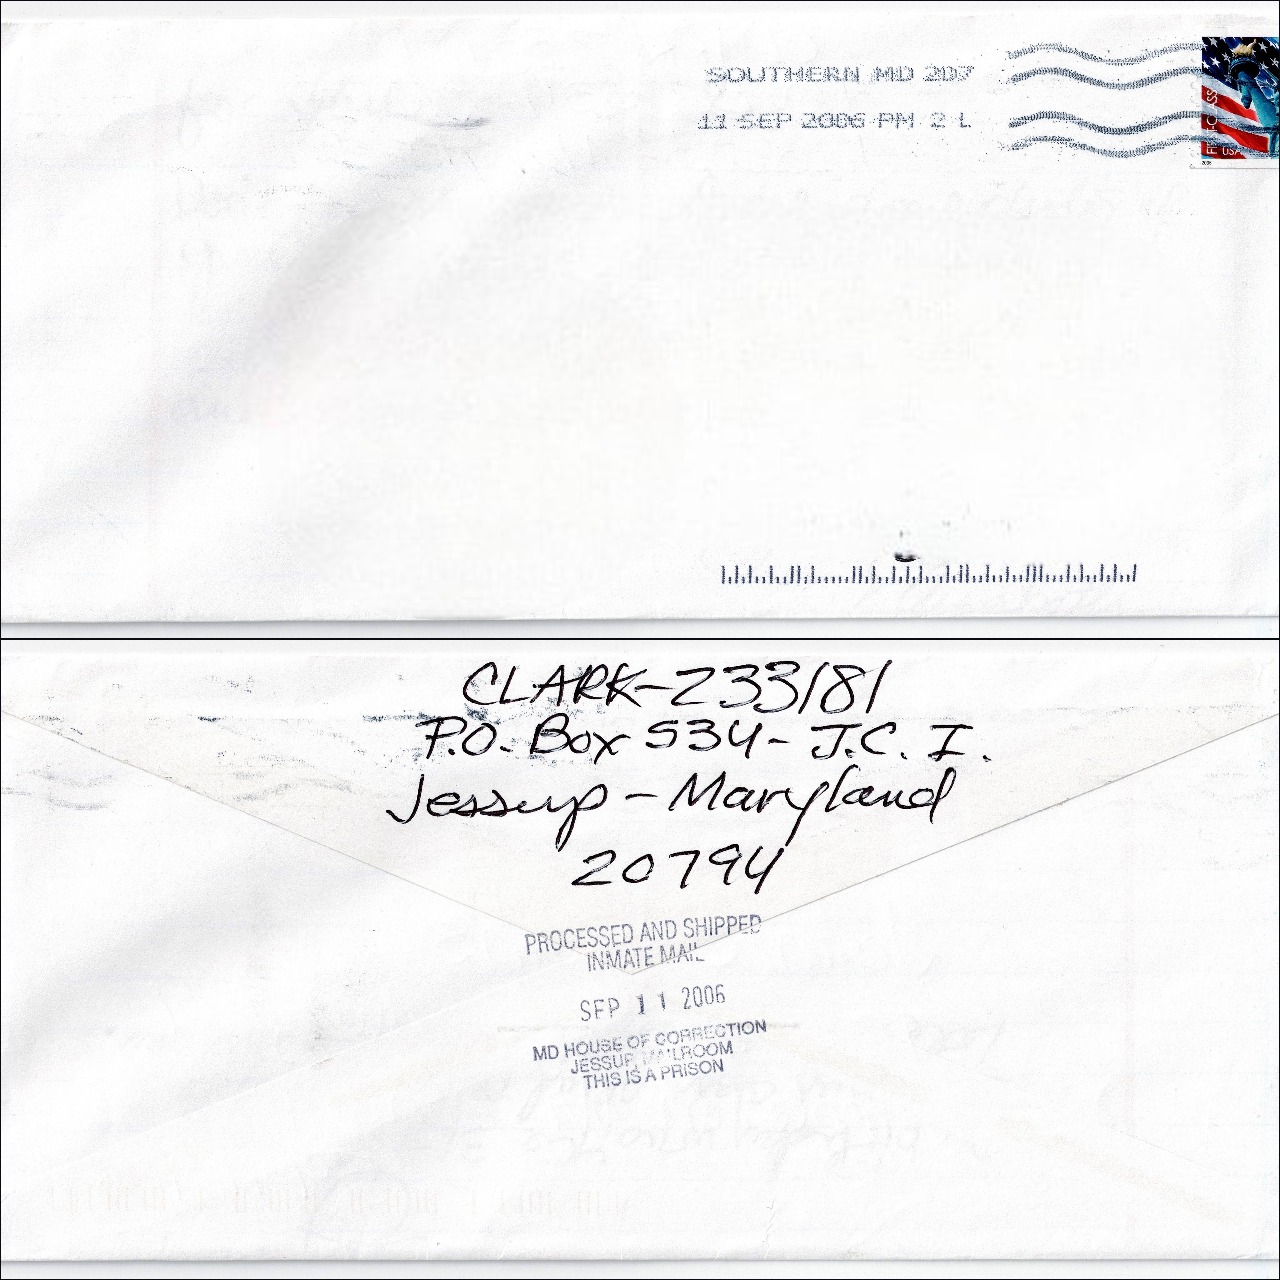 SOUTHERN MD 207
11 SEP 2006 PM 2 L
FIRST-CLASS
USA
2006
CLARK-233181
P.O. Box 534- J.C.I.
Jessup - Maryland
20794
PROCESSED AND SHIPPED
INMATE MAIL
SEP 11 2006
MD HOUSE OF CORRECTION
JESSUP, MAILROOM
THIS IS A PRISON